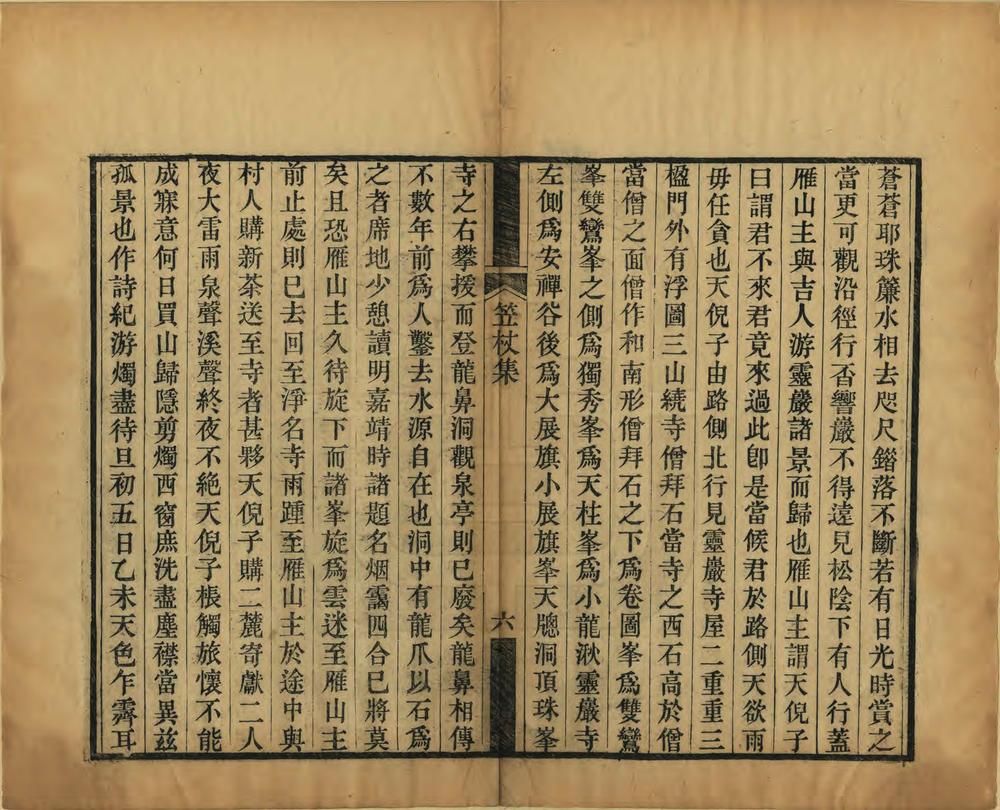 蒼蒼耶珠簾水相去咫尺錯落不斷若有日光時賞之
當更可觀沿徑行否響巖不得遠見松陰下有人行蓋
雁山主與吉人游靈巖諸景而歸也雁山主謂天倪子
曰謂君不來君竟來過此卽是當候君於路側天欲雨
毋任貪也天倪子由路側北行見靈巖寺屋二重重三
楹門外有浮圖三山繞寺僧拜石當寺之西石高於僧
當僧之面僧作和南形僧拜石之下爲卷圖峯爲雙鸞
峯雙鸞峯之側爲獨秀峯爲天柱峯爲小龍湫靈巖寺
左側爲安禪谷後爲大展旗小展旗峯天牕洞頂珠峯
笠杖集
六
寺之右攀援而登龍鼻洞觀泉亭則已廢矣龍鼻相傳
不數年前爲人鑿去水源自在也洞中有龍爪以石爲
之者席地少憩讀明嘉靖時諸題名烟靄四合已將莫
矣且恐雁山主久待旋下而諸峯旋爲雲迷至雁山主
前止處則已去回至淨名寺雨踵至雁山主於途中與
村人購新茶送至寺者甚夥天倪子購二麓寄獻二人
夜大雷雨泉聲溪聲終夜不絶天倪子棖觸旅懷不能
成寐意何日買山歸隱剪燭西窗庶洗盡塵襟當異兹
孤景也作詩紀游燭盡待旦初五日乙未天色乍霽耳